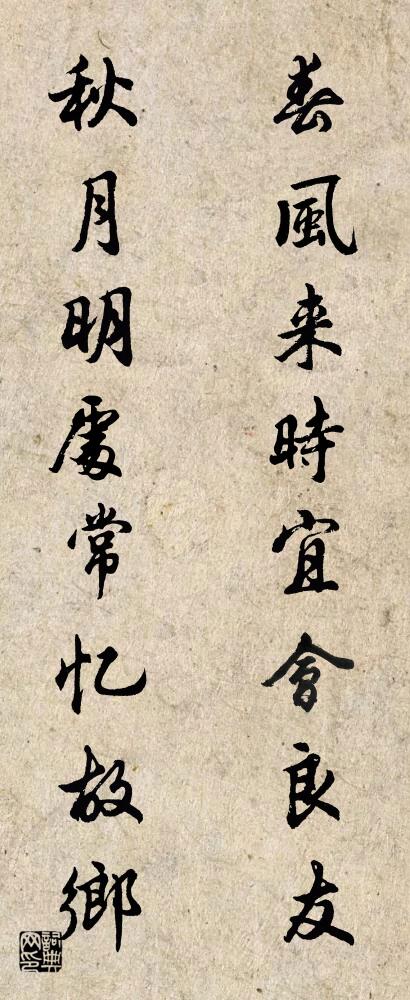 春風来時宜會良友
秋月明處常忆故鄉
詞典網印